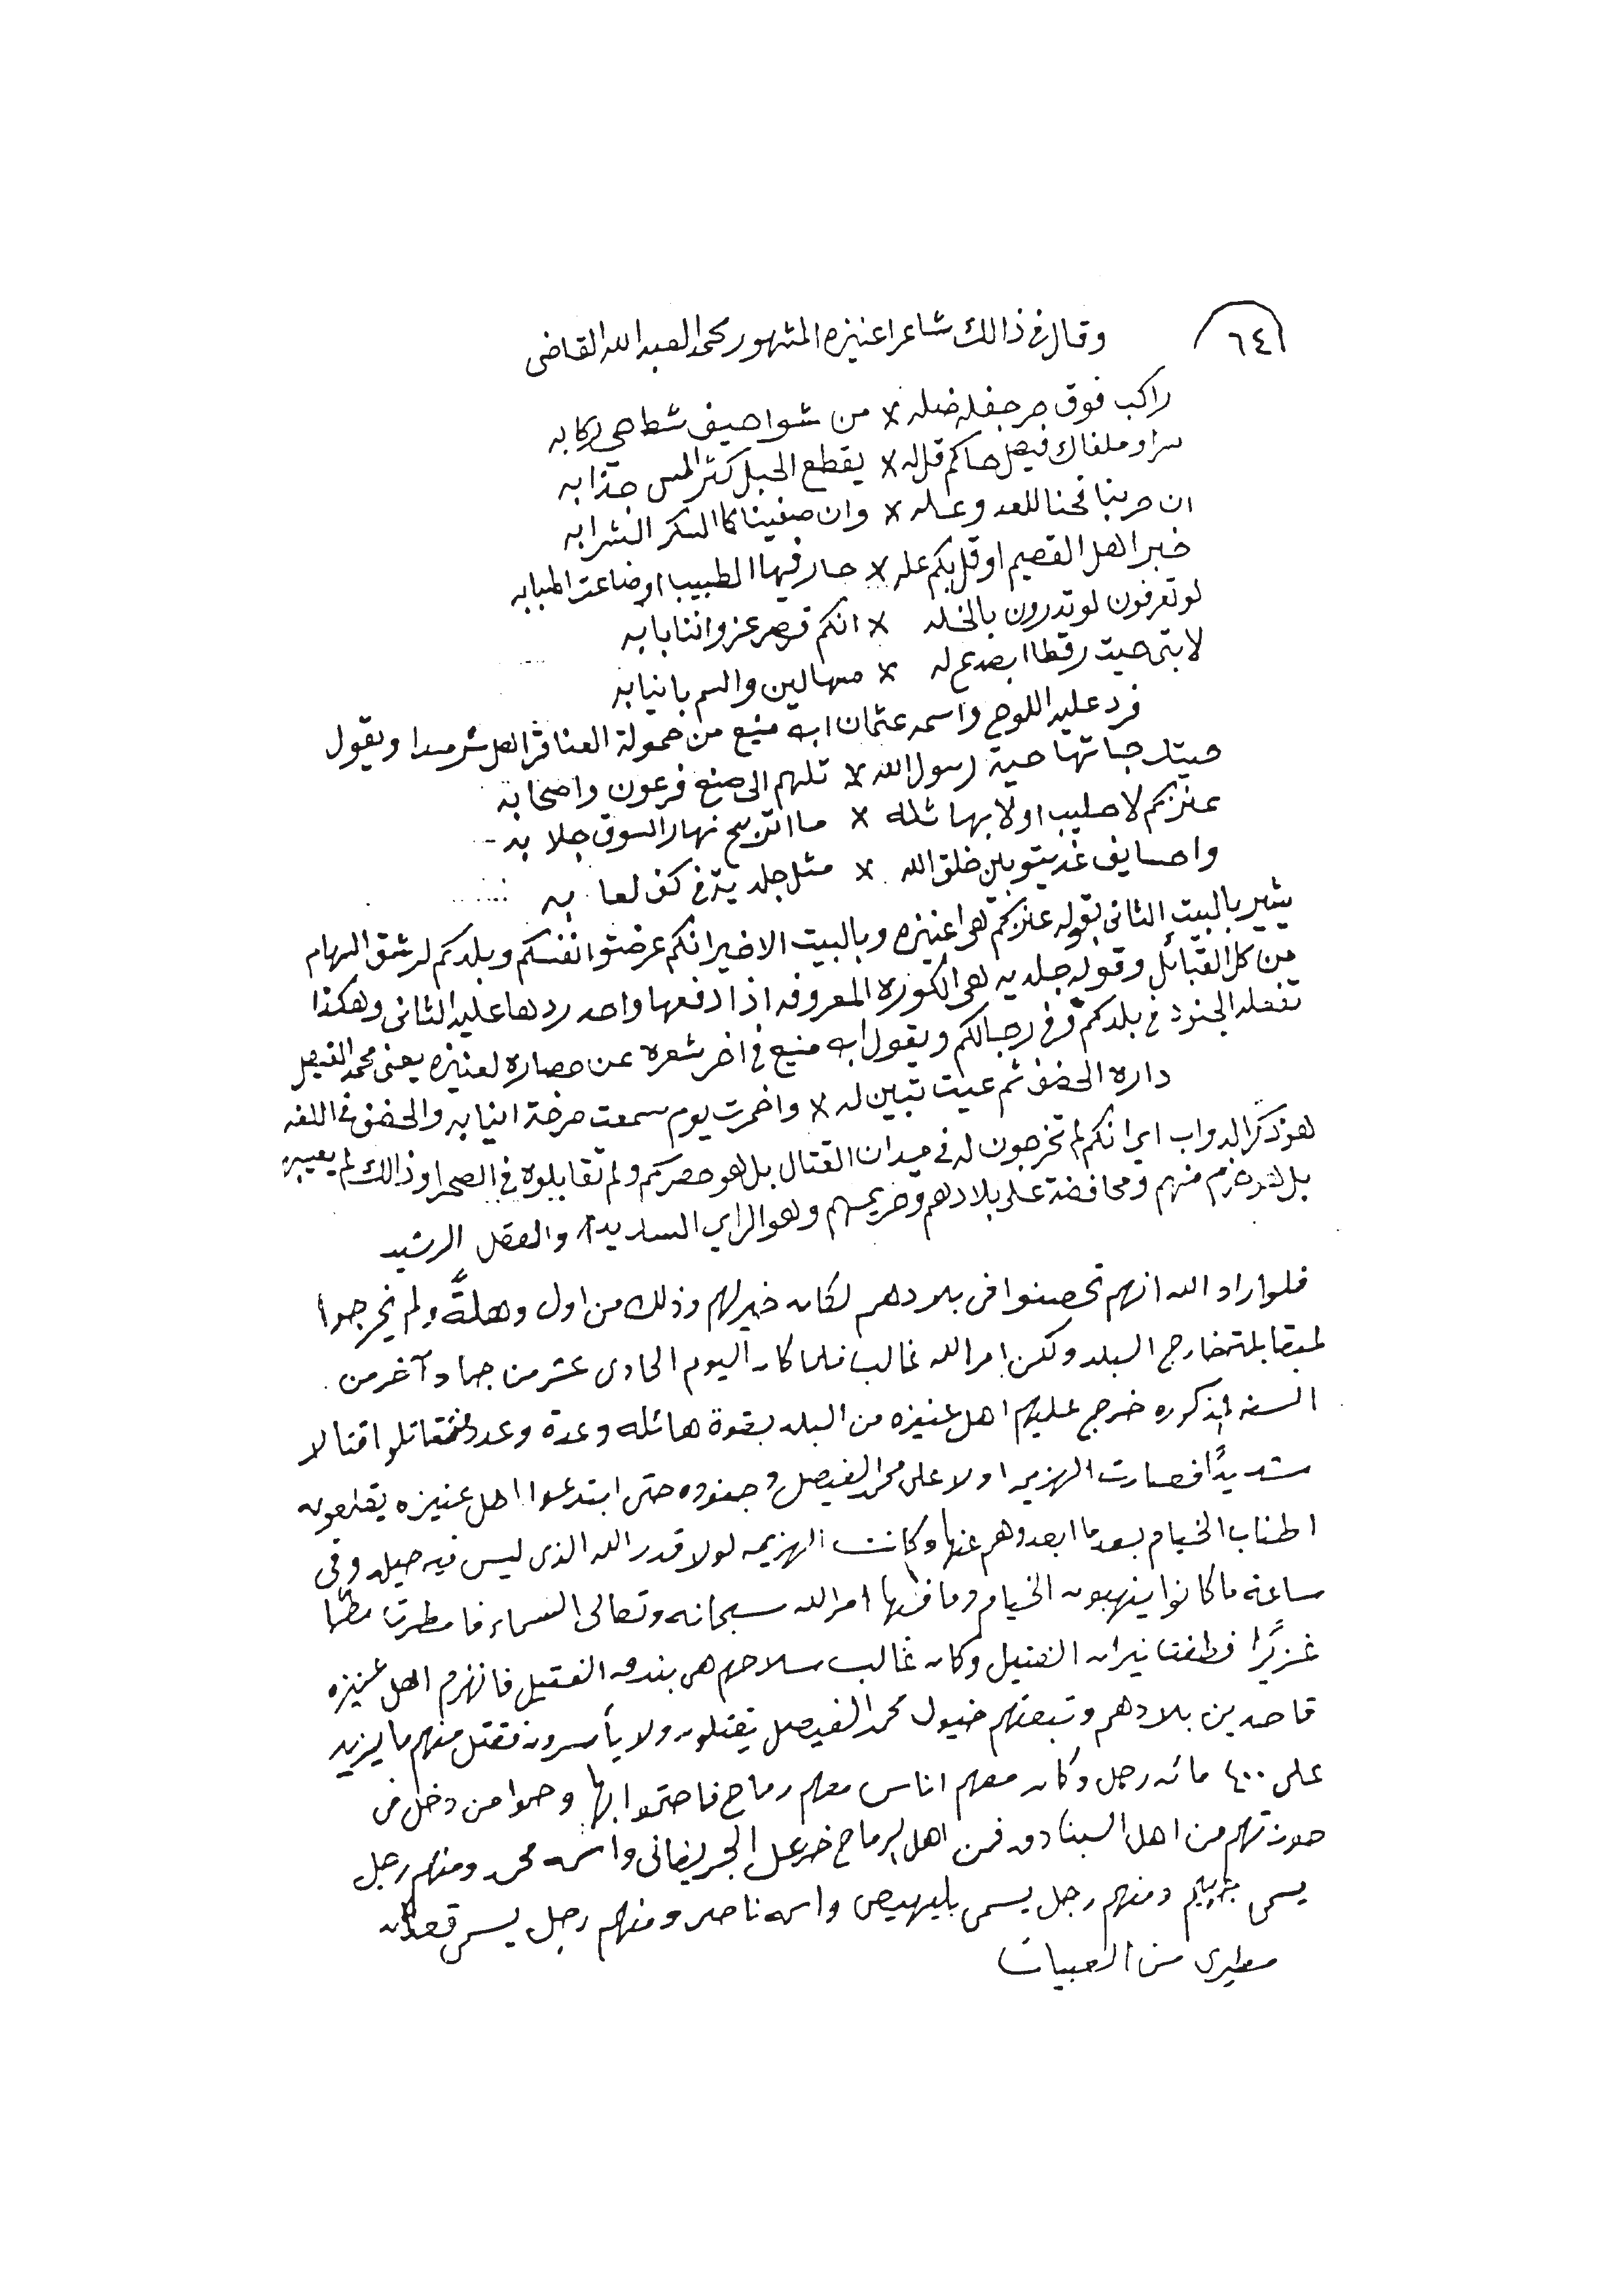 ٦٤
وقال في ذالك شاعر اعنيزه المشهور محمد العبدالله القاضي
راكب فوق حر جفله ضله × من شواحيف شط هجي ركابه
سر او ملفاك فيصل حاكم قل له × يقطع الحبل كثر المس جذابه
ان حربنا فحنا للعدو عله × وان صفينا كما السكر الشرابه
خبر اهل القصيم او قل بكم عله × حار فيها الطبيب او ضاعت المبابه
لو تعرفون لو تدرون بالخله × انكم قصر عز واننا بابه
لابتي حيت رقطا ابصدع له × مهالين والسم بانيابه
فرد عليه اللوح واسمه عثمان ابن منيع من حمولة العناقر اهل ثرمدا ويقول
حيتك جاتها حية رسول الله × تلهم الى صنع فرعون واصحابه
عنزكم لا حليب اولا بها ثله × ما اتربح نهار السوق جلابه
واحسايف غديتو بين خلق الله × مثل جلديه في كف لعابه
يشير بالبيت الثاني بقوله عنزكم هي اعنيزه وبالبيت الاخير انكم عرضتوا انفسكم وبلدكم لرشق السهام
من كل القبائل وقوله جلديه هي الكوره المعروفه اذا دفعها واحد ردها عليه الثاني وهكذا
تفعله الجنود في بلدكم وفي رجالكم ويقول ابن منيع في اخر شعره عن حصاره لعنيزه يعني محمد الفيصل
داره الحضف ثم عيت تبين له × واخمرت يوم سمعت صرخة انيابه والحضف في اللغه
هو ذكر الدواب اي انكم لم تخرجون له في ميدان القتال بل هو حصركم ولم تقابلوه في الصحرا وذالك لم يعيبهم
بل هو حزم منهم ومحافضة على بلادهم وحريمهم وهو الراي السديد والعقل الرشيد
فلو اراد الله انهم تحصنوا في بلادهم لكان خير لهم وذلك من اول وهلة ولم يخرجوا
لمقابلته خارج البلد ولكن امر الله غالب فلما كان اليوم الحادي عشر من جماد آخر من
السنه المذكوره خرج عليهم اهل عنيزه من البلد بقوة هائله وعدة وعدد فتقاتلوا قتالا
شديدًا فصارت الهزيمه اولا على محمد الفيصل وجنوده حتى ابتدعوا اهل عنيزه يقلعون
اطناب الخيام بعد ما ابعدوهم عنها وكانت الهزيمه لولا قدر الله الذي ليس فيه حيله وفي
ساعة ما كانوا ينهبون الخيام وما فيها امر الله سبحانه وتعالى السماء فامطرت مطرًا
غزيرًا فطفت نيران الفتيل وكان غالب سلاحهم هي بندق الفتيل فانهزم اهل عنيزه
قاصدين بلادهم وتبعتهم خيول محمد الفيصل يقتلون ولا يأسرون فقتل منهم ما يزيد
على ٤٠٠ مائه رجل وكان معهم اناس معهم رماح فاحتموا بها وحموا من دخل في
حوزتهم من اهل البنادق فمن اهل الرماح خرعل الجريفاني واسمه محمد ومنهم رجل
يسمى ومنهم رجل يسمى بليهيص واسمه ناصر ومنهم رجل يسمى قعدان
مطيري من العبيات